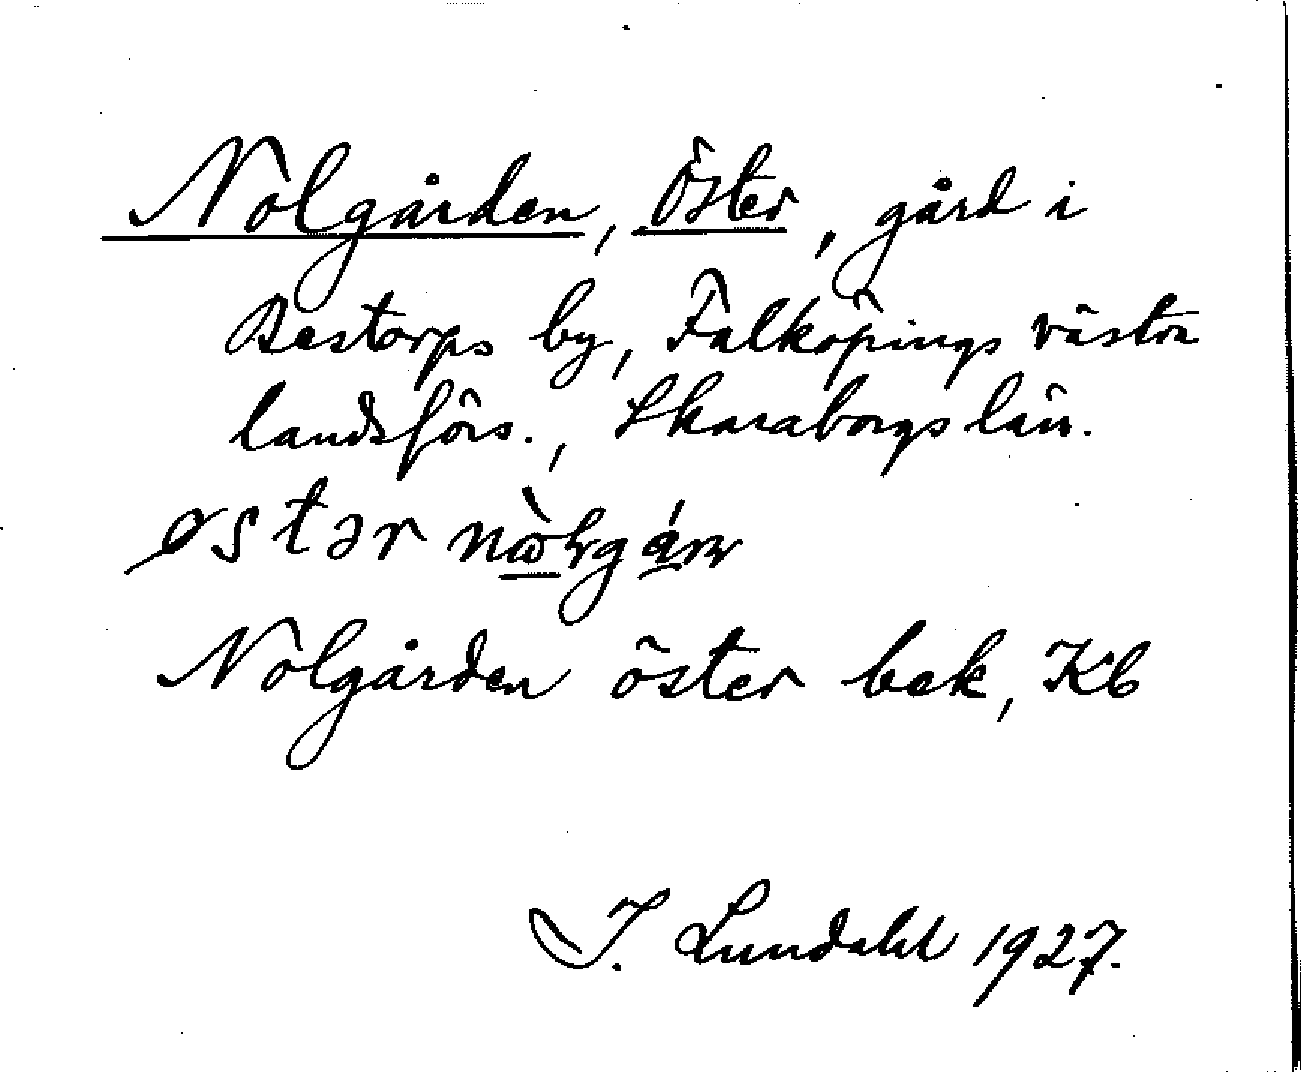 Nolgården, Öster, gård i
Bestorps by, Falköpings västra
landsförs., Skaraborgs län.
østər
Nolgården öster bek, Kb
I. Lundahl 1927.